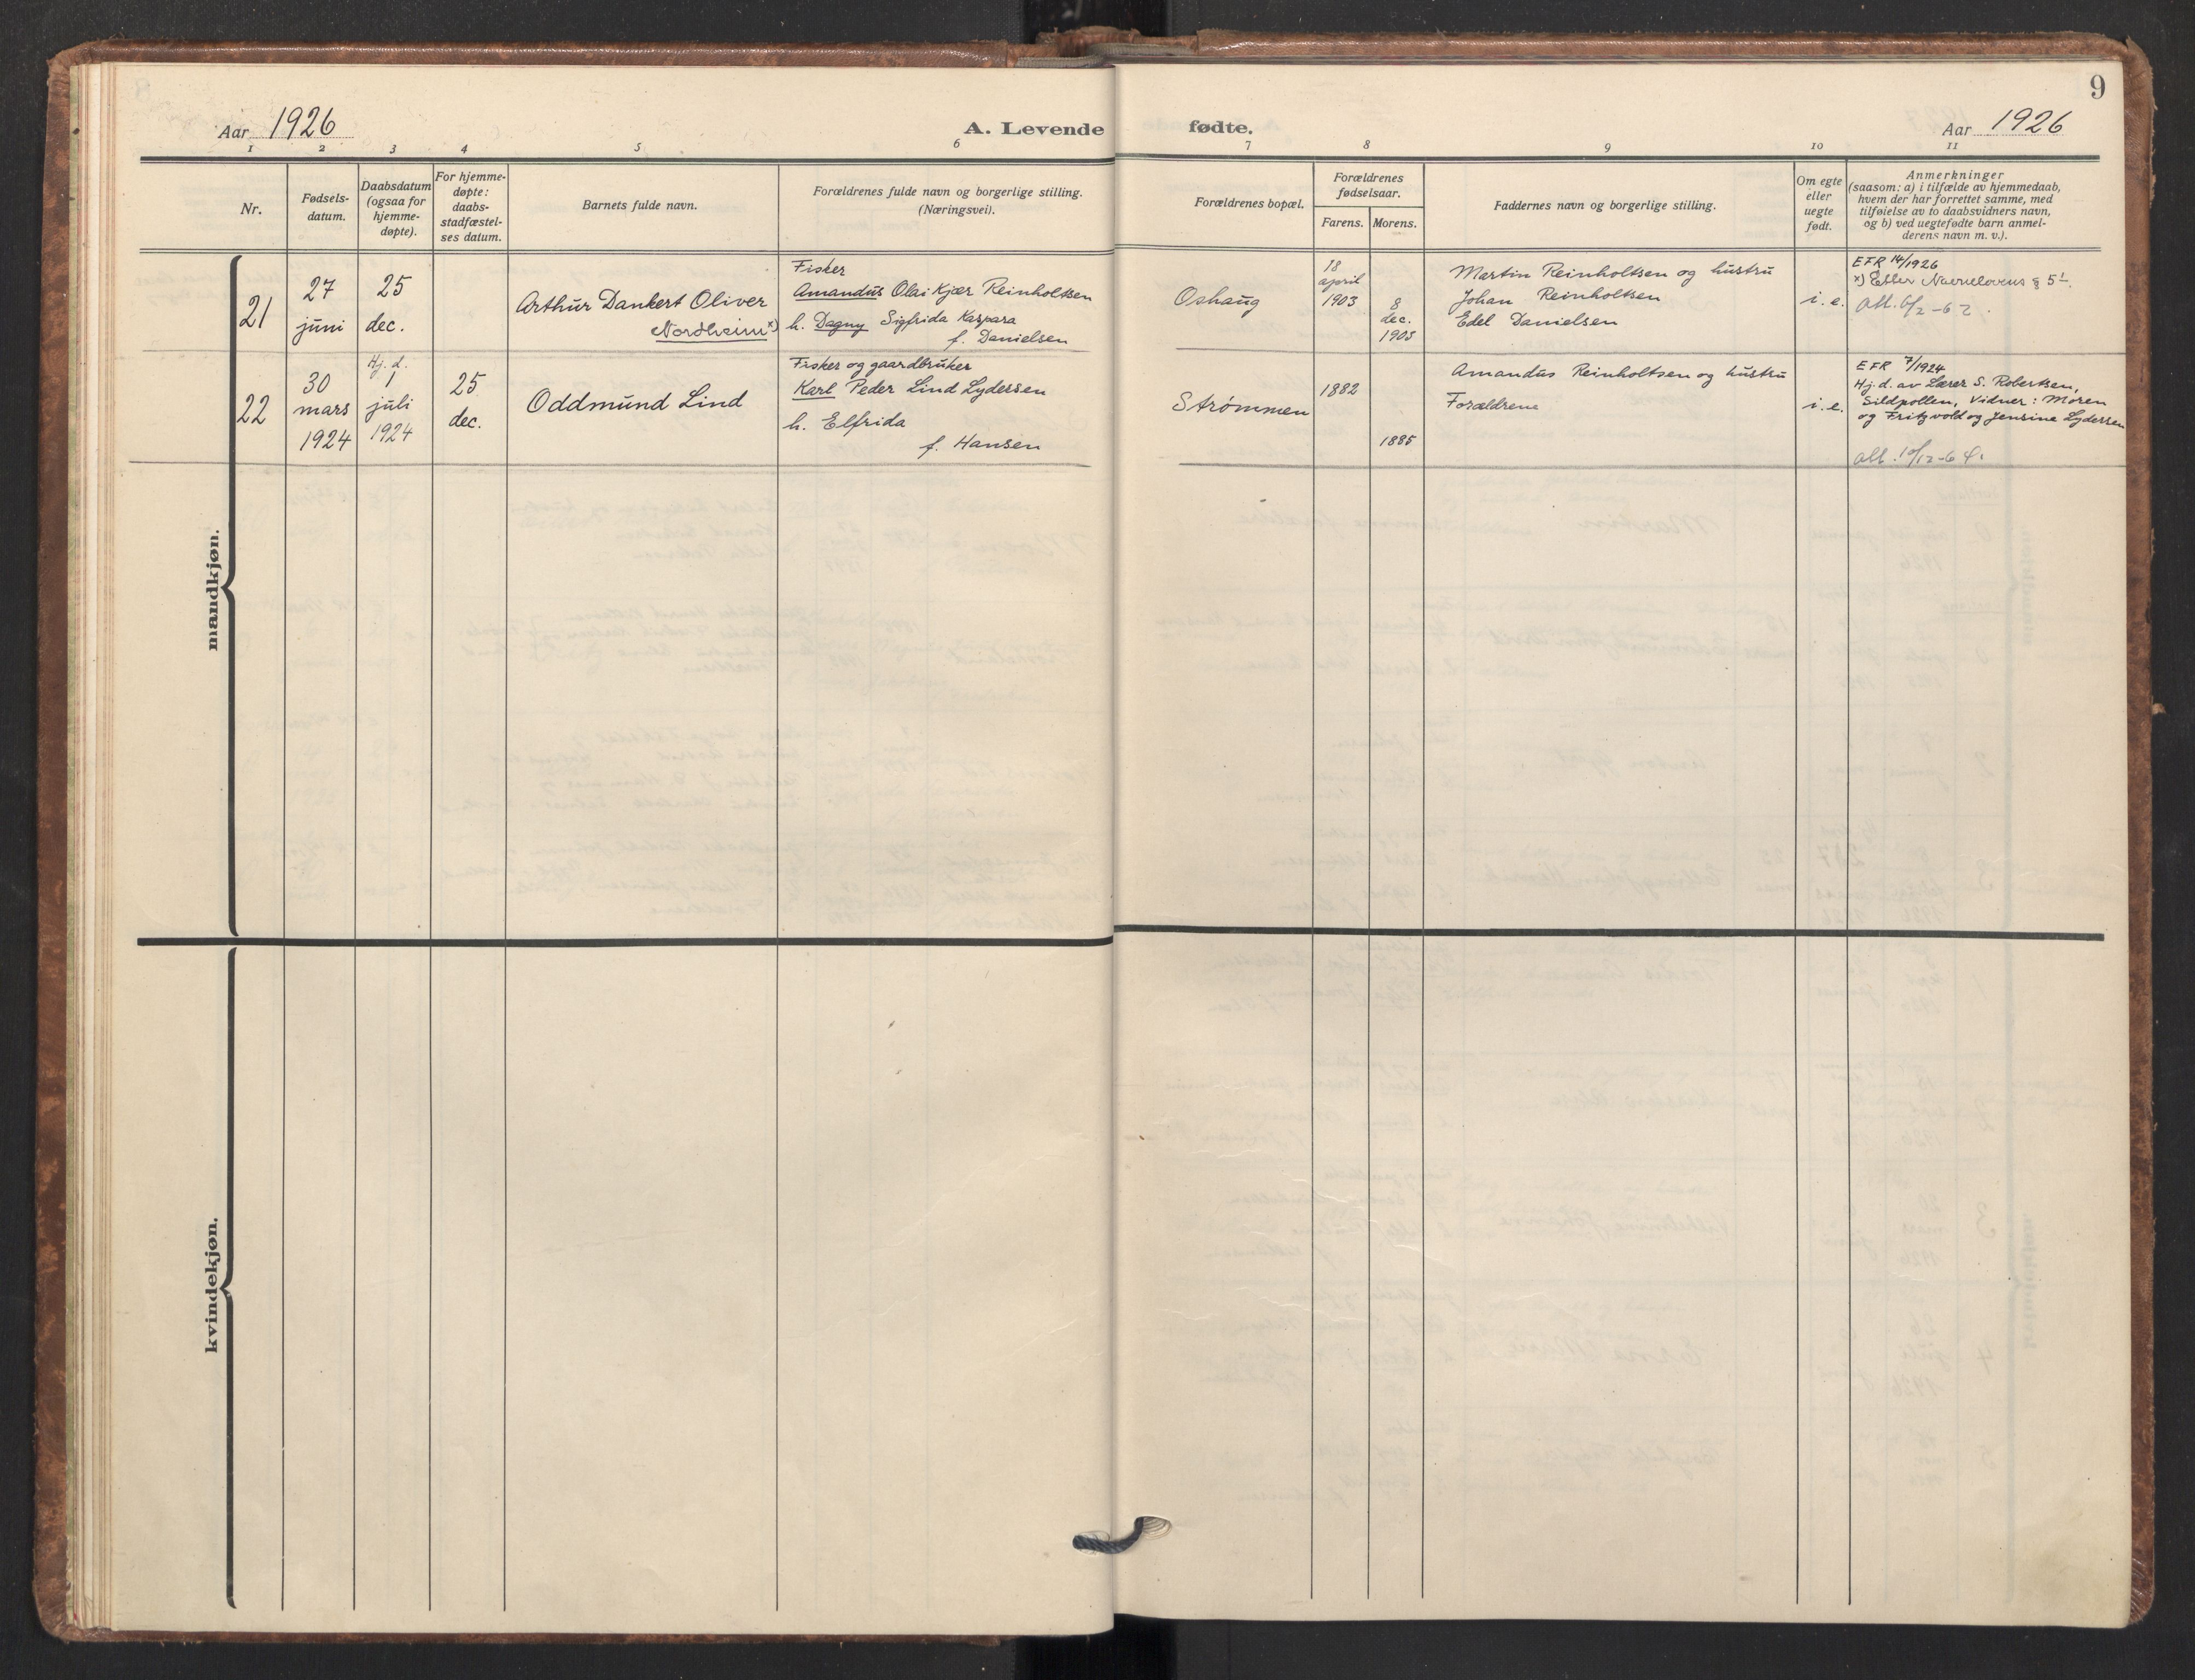 9
Aar 1926
A. Levende
fødte.
Aar 1926
1 2 3 4 5 6 7 8 9 10 11
Nr.
Fødsels-
datum.
Daabsdatum
(ogsaa for
hjemme-
døpte).
For hjemme-
døpte:
daabs-
stadfæstel-
ses datum.
Barnets fulde navn.
Forældrenes fulde navn og borgerlige stilling.
(Næringsvei).
Forældrenes bopæl.
Forældrenes
fødselsaar.
Farens. Morens.
Faddernes navn og borgerlige stilling.
Om egte
eller
uegte
født.
Anmerkninger
(saasom: a) i tilfælde av hjemmedaab,
hvem der har forrettet samme, med
tilføielse av to daabsvidners navn,
og b) ved uegtefødte barn anmel-
derens navn m. v.).
mandkjøn.
21
27
juni
25
dec.
Arthur Dankert Oliver
Nordheim x)
Fisker
Amandus Olai Kjær Reinholtsen
h. Dagny Sigfrida Kaspara
f. Danielsen
Oshaug
18
april
1903
8
dec.
1905
Martin Reinholtsen og hustru
Johan Reinholtsen
Edel Danielsen
i. e.
EFR 14/1926
x) Efter Navnelovens § 5
Att. 6/2-62.
22
30
mars
1924
Hj. d.
1
juli
1924
25
dec.
Oddmund Lind
Fisker og gaardbruker
Karl Peder Lind Lydersen
h. Elfrida
f. Hansen
Strømmen
1882
1885
Amandus Reinholtsen og hustru
Forældrene
i. e.
EFR 7/1924
Hj. d. av Lærer S. Robertsen,
Sildpollen, Vidner: Moren
og Fritzvold og Jensine Lydersen
Att. 10/12-64.
kvindekjøn.